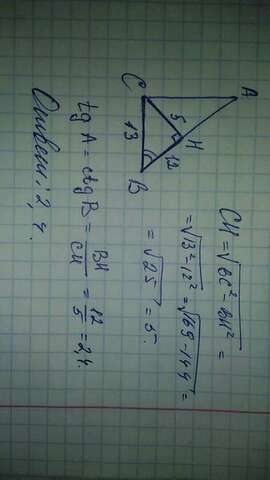 A
C
5
H
13
12
B
CH = √BC² - BH² =
= √13² - 12² = √169 - 144 =
= √25 = 5.
tg A = ctg B = BH/CH = 12/5 = 2,4.
Ответ: 2,4.